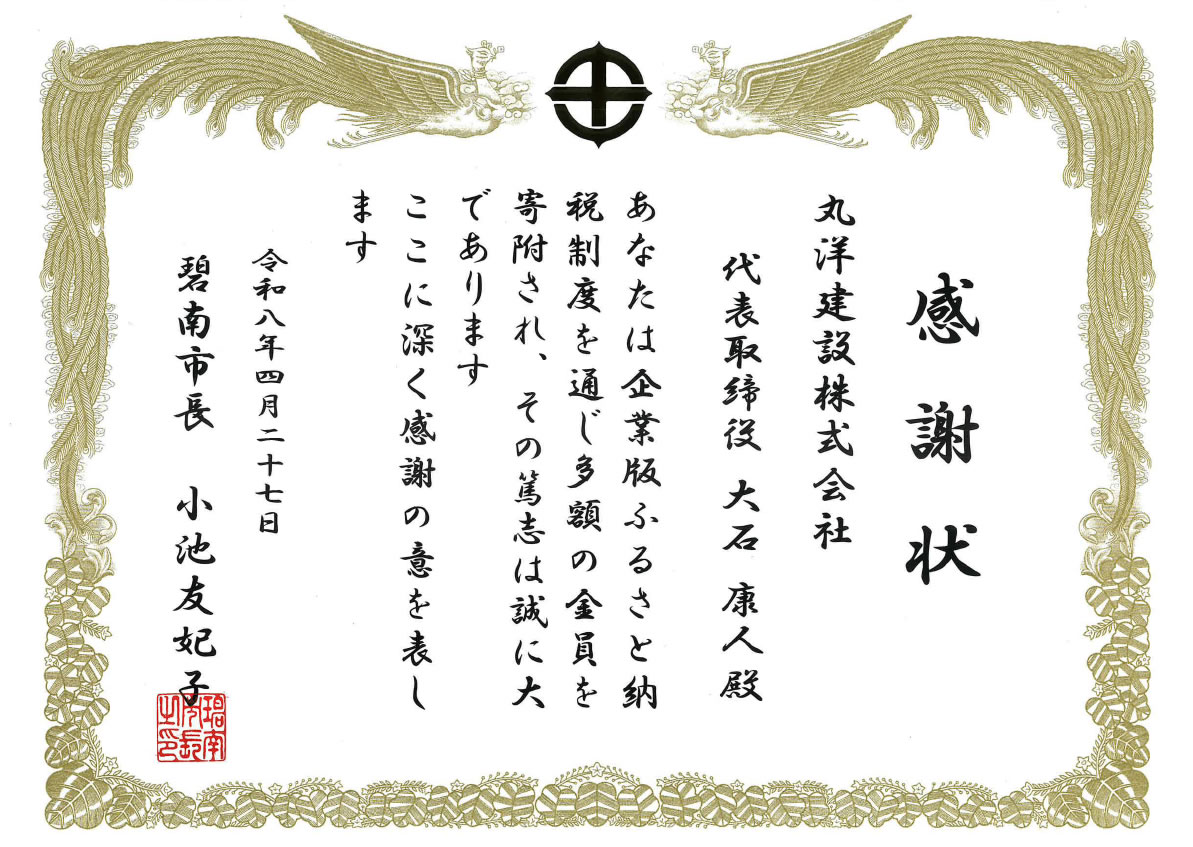 感謝状
丸洋建設株式会社
代表取締役 大石 康人殿
あなたは企業版ふるさと納
税制度を通じ多額の金員を
寄附され、その篤志は誠に大
であります
ここに深く感謝の意を表し
ます
令和八年四月二十七日
碧南市長 小池友妃子
碧南市長之印